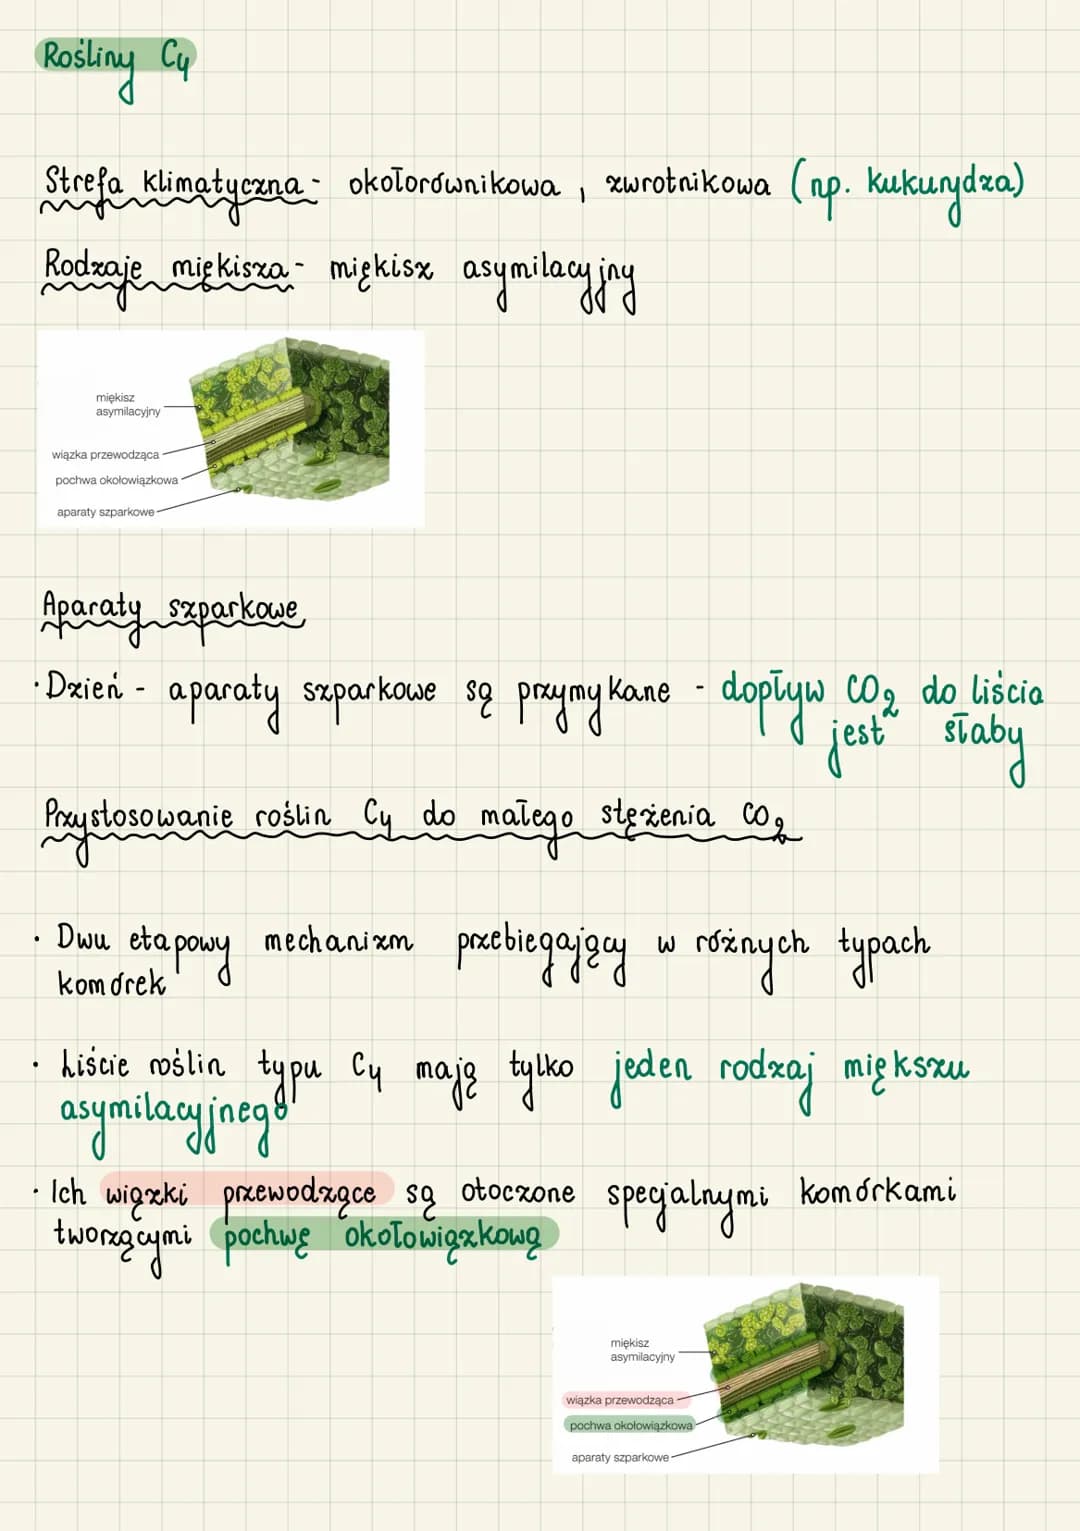 Rośliny C4
Strefa klimatyczna - okołorównikowa, zwrotnikowa (np. kukurydza)
Rodzaje miękisza - miękisz asymilacyjny
miękisz
asymilacyjny
wiązka przewodząca
pochwa okołowiązkowa
aparaty szparkowe
Aparaty szparkowe
· Dzień - aparaty szparkowe są przymykane - dopływ CO2 do liścia
jest słaby
Przystosowanie roślin C4 do małego stężenia CO2
· Dwu etapowy mechanizm przebiegający w różnych typach
komórek
· Liście roślin typu C4 mają tylko jeden rodzaj miększu
asymilacyjnego
· Ich wiązki przewodzące są otoczone specjalnymi komórkami
tworzącymi pochwę okołowiązkową
miękisz
asymilacyjny
wiązka przewodząca
pochwa okołowiązkowa
aparaty szparkowe